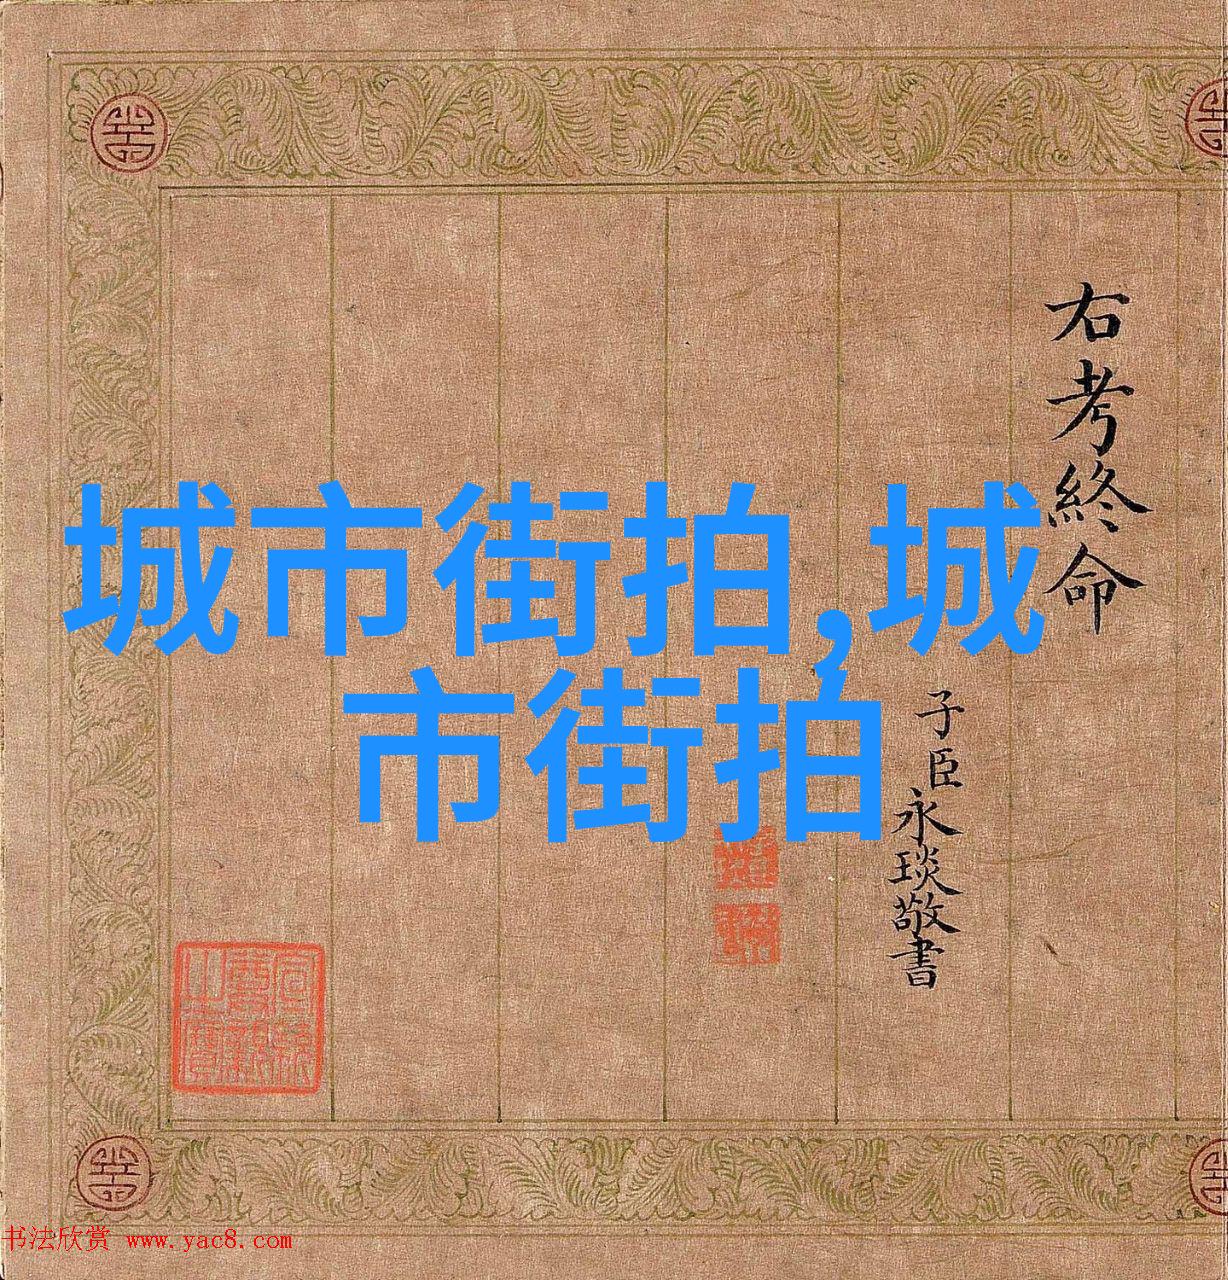 城市街拍,城
市街拍
右考終命
子臣永琰敬書
书法欣赏 www.yac8.com